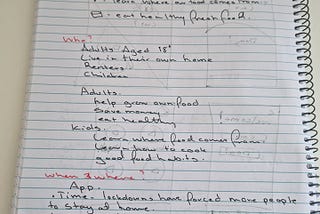 learn where food comes from
eat healthy fresh food.
Who?
Adults Aged 18+
Live in their own home
Renters.
Children
Adults.
help grow own food
Save money
eat healthy
Kids.
Learn where food comes from.
Learn how to cook
good food habits.
When & where?
App.
. Time. lockdowns have forced more people
to stay at home.